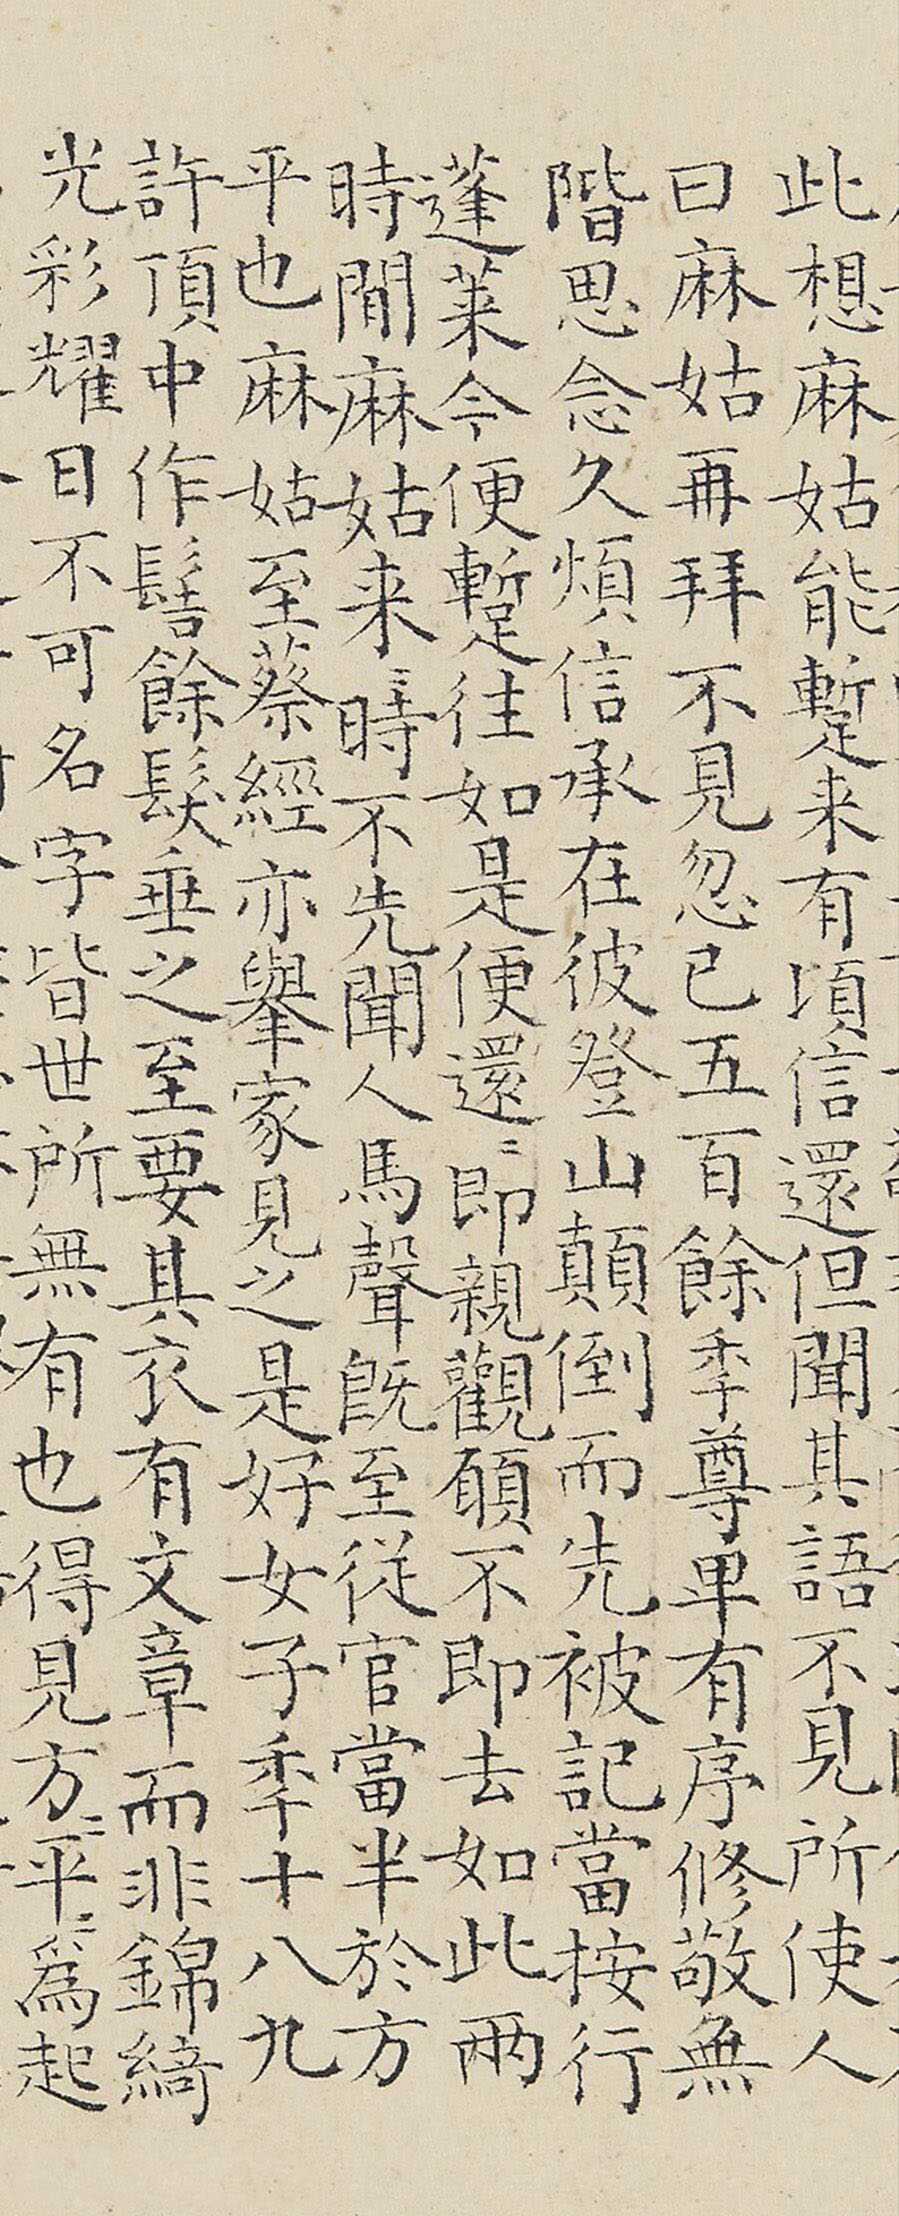 此想麻姑能蹔来有頃信還但聞其語不見所使人
曰麻姑再拜不見忽已五百餘秊尊卑有序修敬無
階思念久煩信承在彼登山顛倒而先被記當按行
蓬莱今便蹔往如是便還〻即親觀願不即去如此兩
時間麻姑来〻時不先聞人馬聲既至從官當半於方
平也麻姑至蔡經亦舉家見之是好女子秊十八九
許頂中作髻餘髮垂之至要其衣有文章而非錦綺
光彩耀日不可名字皆世所無有也得見方〻平〻爲起